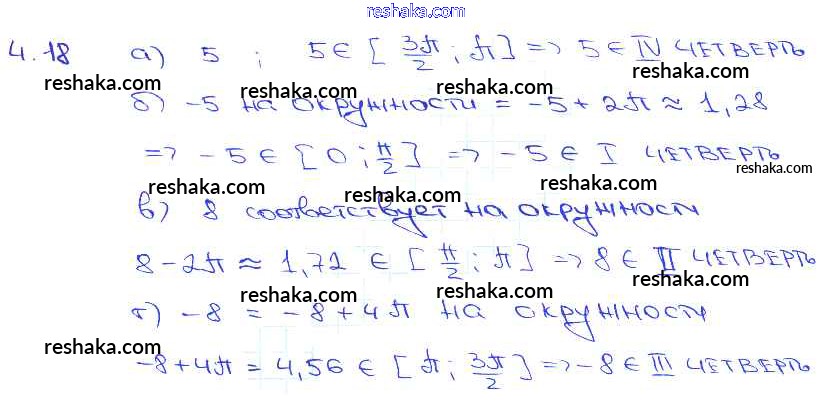 reshaka.com
4.18 а) 5 ; 5 ∈ [3π/2 ; π] => 5 ∈ IV ЧЕТВЕРТЬ
reshaka.com reshaka.com reshaka.com
б) -5 НА ОКРУЖНОСТИ = -5 + 2π ≈ 1,28
=> -5 ∈ [0 ; π/2] => -5 ∈ I ЧЕТВЕРТЬ
reshaka.com reshaka.com reshaka.com
в) 8 соответствует НА ОКРУЖНОСТИ
8 - 2π ≈ 1,72 ∈ [π/2 ; π] => 8 ∈ II ЧЕТВЕРТЬ
reshaka.com reshaka.com reshaka.com
г) -8 = -8 + 4π НА ОКРУЖНОСТИ
reshaka.com reshaka.com reshaka.com
-8 + 4π = 4,56 ∈ [π ; 3π/2] => -8 ∈ III ЧЕТВЕРТЬ